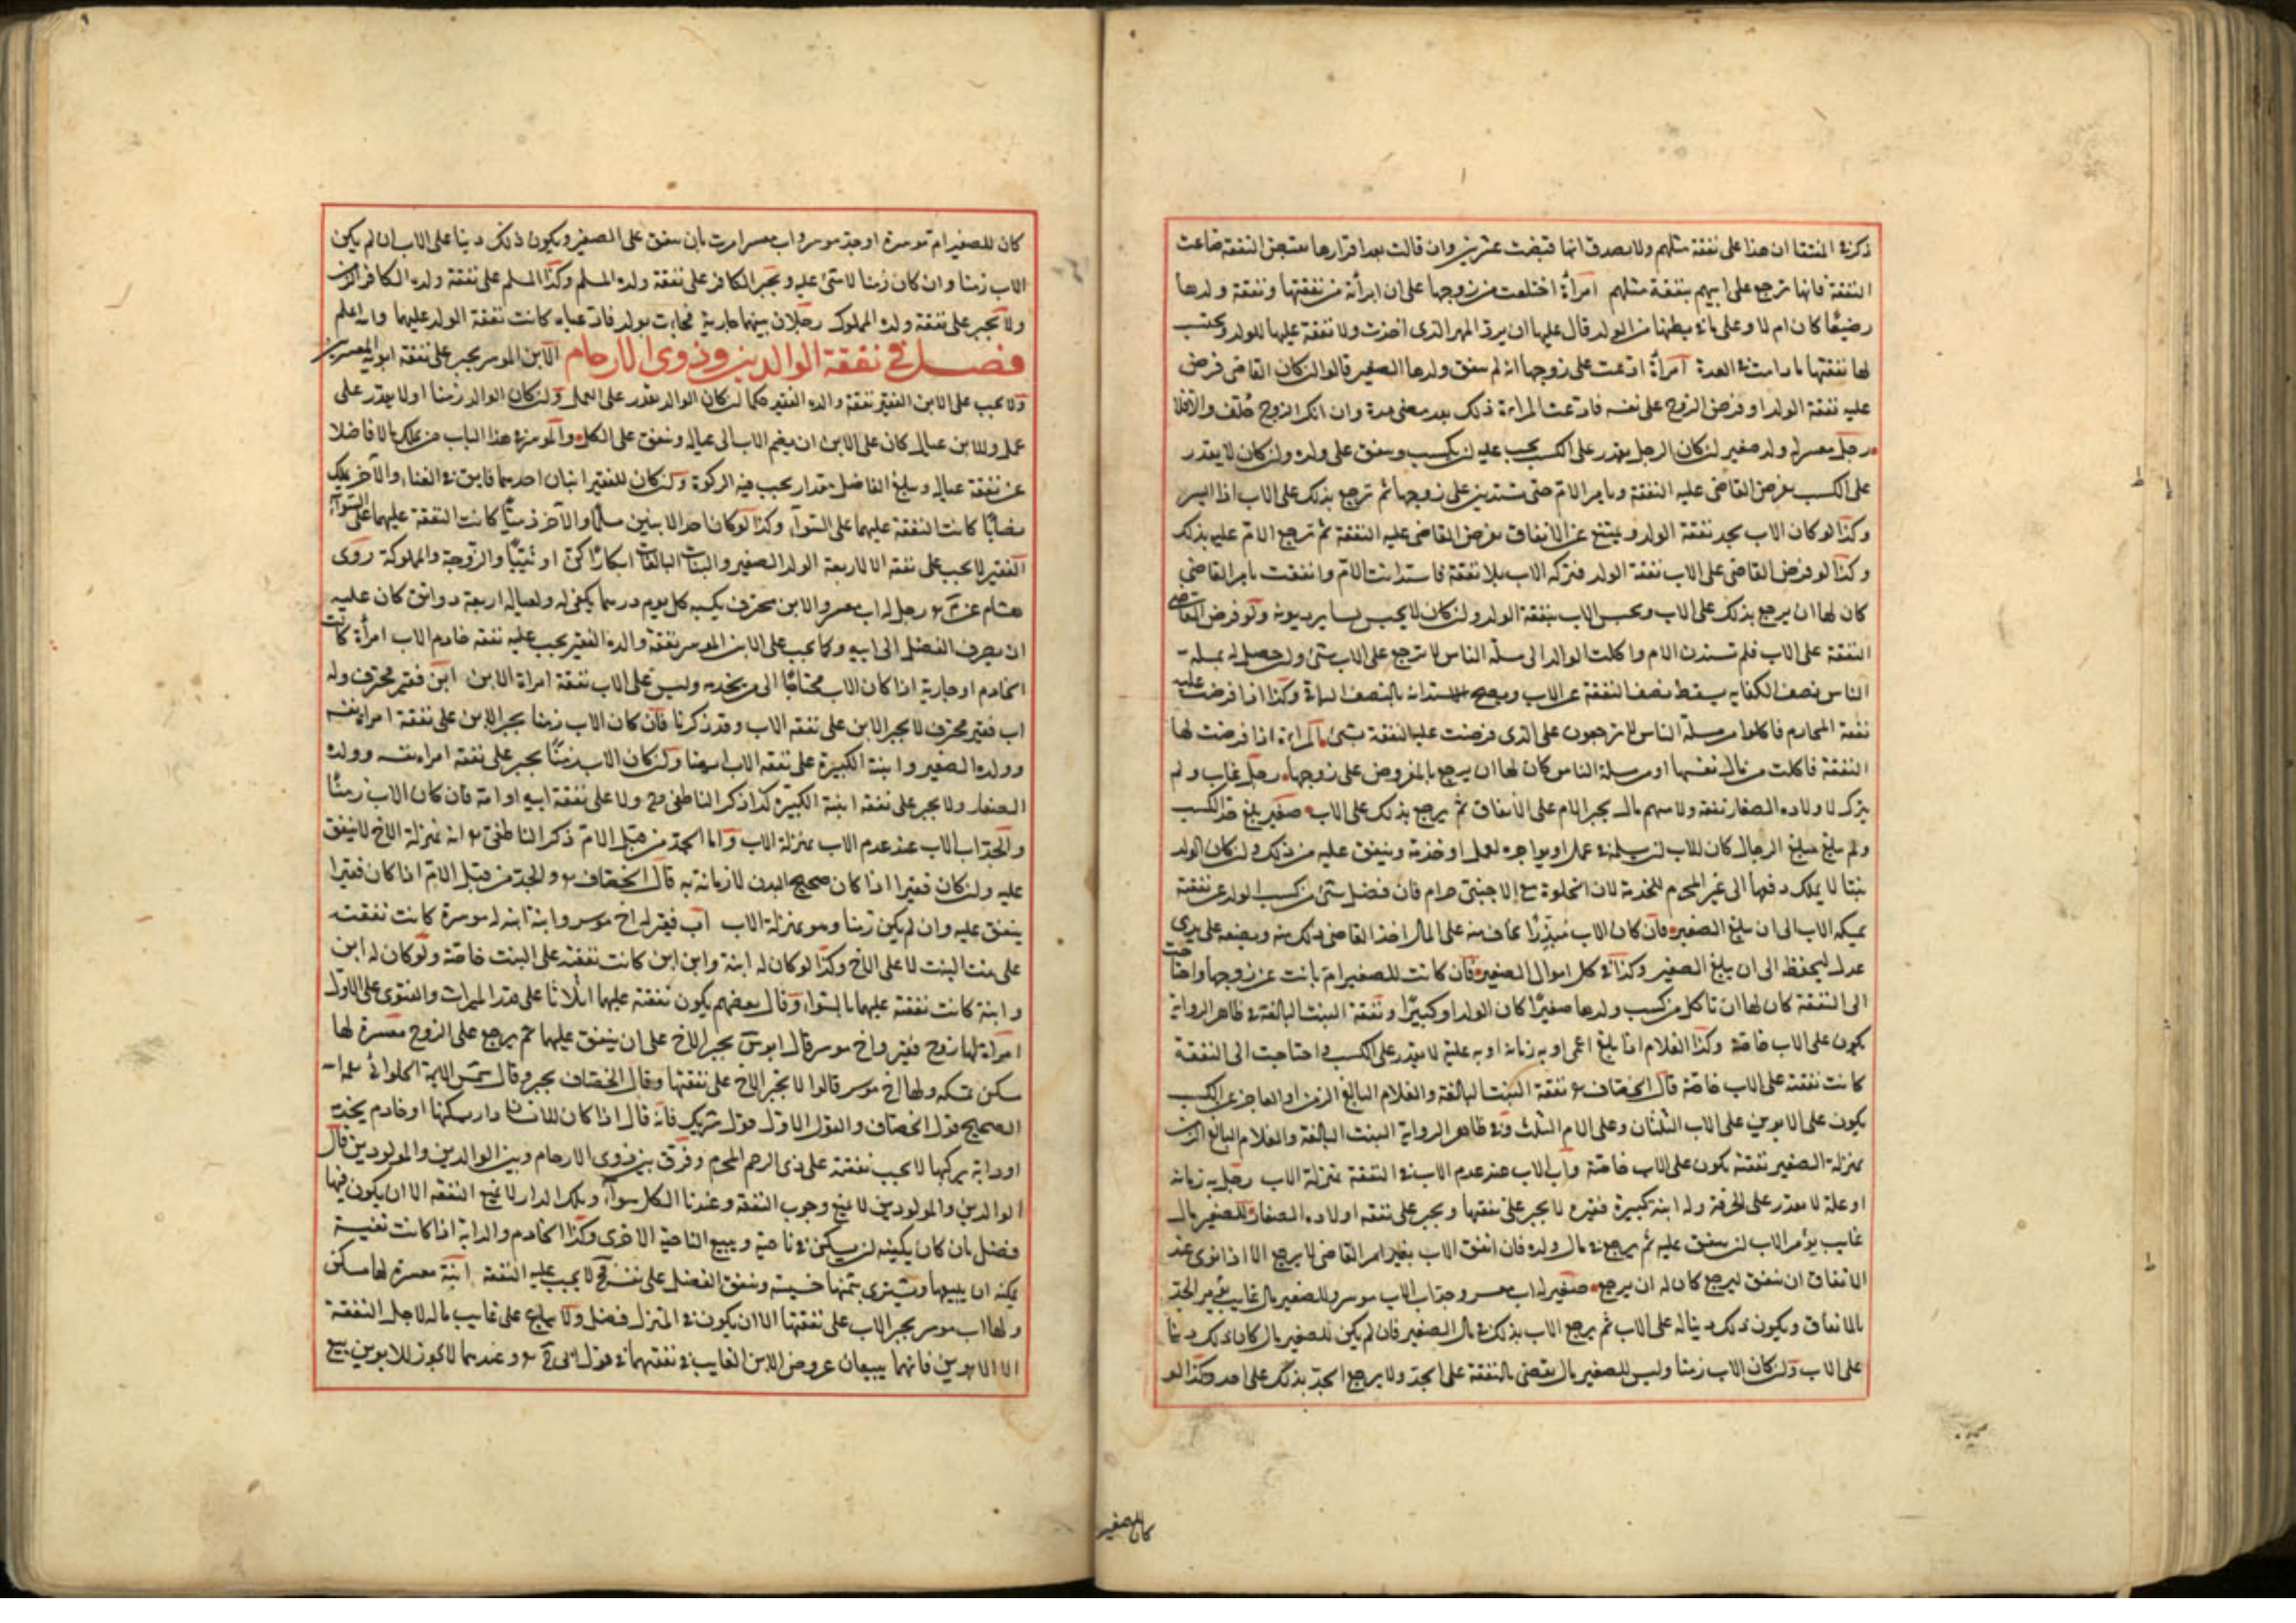 ذكر في المنتقا ان هذا على نفقة مثلهم ولا يصدق انها قبضت عشرين وان قالت بعد اقرارها بقبض النفقة ضاعت
النفقة فانها ترجع على ابيهم بنفقة مثلهم امرأة اختلعت من زوجها على ان ابرأته من نفقتها ونفقة ولدها
رضيعًا كان ام لا وعلى ما في بطنها من الولد قال عليها ان يرد المهر الذى اخذت ولا نفقة عليها للولد ويحتسب
لها نفقتها ما دامت في العدة امرأة ادعت على زوجها انه لم ينفق ولدها الصغير قالوا ان كان القاضى فرض
عليه نفقة الولد او فرض الزوج على نفسه فادعت المراة ذلك بعد مضى مدة وان انكر الزوج حُلّف والا فلا
رجل معسر له ولد صغير ان كان الرجل يقدر على الكسب يجب عليه ان يكسب وينفق على ولده وان كان لا يقدر
على الكسب يفرض القاضى عليه النفقة ويامر الام حتى تستدين على زوجها ثم ترجع بذلك على الاب اذا ايسر
وكذا لو كان الاب يجد نفقة الولد ويمتنع عن الانفاق يفرض القاضى عليه النفقة ثم ترجع الام عليه بذلك
وكذا لو فرض القاضى على الاب نفقة الولد فتركه الاب بلا نفقة فاستدانت الام وانفقت بامر القاضي
كان لها ان يرجع بذلك على الاب ويحبس الاب بنفقة الولد وان كان لا يحبس بساير ديونه ولو فرض القاضى
النفقة على الاب فلم تستدن الام واكلت الولد الى مسئلة الناس لا ترجع على الاب بشئ وان حصل له بمسئلة
الناس نصف الكفاية يسقط نصف النفقة عن الاب ويصح الاستدانة بالنصف الباقي وكذا اذا فرضت عليه
نفقة المحارم فاكلوا من مسئلة الناس لا يرجعون على الذى فرضت عليه النفقة بشئ المراة اذا فرضت لها
النفقة فاكلت من مال نفسها او من مسئلة الناس كان لها ان يرجع بالمفروض على زوجها رجل غاب ولم
يترك لاولاده الصغار نفقة ولامهم مال يجبر الام على الانفاق ثم يرجع بذلك على الاب صغير بلغ حد الكسب
ولم يبلغ مبلغ الرجال كان للاب ان يسلمه في عمل او يواجره لعمل او خدمة وينفق عليه من ذلك وان كان الولد
بنتا لا يملك دفعها الى غير المحرم للخدمة لان الخلوة مع الاجنبى حرام فان فضل شئ من كسب الولد عن نفقته
يمسكه الاب الى ان يبلغ الصغير فان كان الاب مُبَذِّرًا يخاف منه على المال اخذ القاضى ذلك منه ويضعه على يدى
عدل ليحفظ الى ان يبلغ الصغير وكذا في كل اموال الصغير فان كانت للصغير ام بانت عن زوجها واحتاجت
الى النفقة كان لها ان تاكل من كسب ولدها صغيرًا كان الولد او كبيرًا ونفقة البنت البالغة في ظاهر الرواية
يكون على الاب خاصة وكذا الغلام اذا بلغ اعمى او به زمانة او به علة لا يقدر على الكسب واحتاجت الى النفقة
كانت نفقته على الاب خاصة قال الخصاف نفقة البنت البالغة والغلام البالغ الزمن او العاجز عن الكسب
يكون على الابوين على الاب الثلثان وعلى الام الثلث وفي ظاهر الرواية البنت البالغة والغلام البالغ الزمن
بمنزلة الصغير نفقته يكون على الاب خاصة واب الاب عند عدم الاب في النفقة بمنزلة الاب رجل به زمانة
او علة لا يقدر على الحرفة وله ابنة كبيرة فقيرة لا يجبر على نفقتها ويجبر على نفقة اولاده الصغار للصغير مال
غايب يؤمر الاب ان ينفق عليه ثم يرجع في مال ولده فان انفق الاب بغير امر القاضى لا يرجع الا اذا نوى عند
الانفاق ان ينفق ليرجع كان له ان يرجع صغير له اب معسر وجد اب الاب موسر وللصغير مال غايب يؤمر الجد
بالانفاق ويكون ذلك دينا له على الاب ثم يرجع الاب بذلك في مال الصغير فان لم يكن للصغير مال كان ذلك دينا
على الاب وان كان الاب زمنا وليس للصغير مال يقضى بالنفقة على الجد ولا يرجع الجد بذلك على احد وكذا لو
كان للصغير
كان للصغير ام موسرة او جدة موسرة واب معسر امرت بان ينفق على الصغير ويكون ذلك دينا على الاب ان لم يكن
الاب زمنا وان كان زمنا لا شئ عليه ويجبر الكافر على نفقة ولده المسلم وكذا المسلم على نفقة ولده الكافر الزمن
ولا يجبر على نفقة ولده المملوك رجلان بينهما جارية فجاءت بولد فادعياه كانت نفقة الولد عليهما والله اعلم
فصل في نفقة الوالدين وذوى الارحام الابن الموسر يجبر على نفقة ابويه المعسرين
ولا يجب على الابن الفقير نفقة والده الفقير حكما ان كان الوالد يقدر على العمل وان كان الوالد زمنا او لا يقدر على
عمل وللابن عيال كان على الابن ان يضم الاب الى عياله وينفق على الكل والموسر في هذا الباب من يملك مالا فاضلا
عن نفقة عياله ويبلغ الفاضل مقدار يجب فيه الزكوة وان كان للفقير ابنان احدهما فايق في الغناء والآخر يملك
نصابًا كانت النفقة عليهما على السوآء وكذا لو كان احد الابنين مسلمًا والآخر ذميًّا كانت النفقة عليهما على السوآء
الفقير لا يجب على نفقة الا لاربعة الولد الصغير والبنات البالغات ابكارًا كن او ثيبًا والزوجة والمملوكة روى
هشام عن رجل له اب معسر والابن محترف يكسبه كل يوم درهما يكفى له ولعياله اربعة دوانق كان عليه
ان يصرف الفضل الى ابيه وكما يجب على الابن الموسر نفقة والده الفقير يجب عليه نفقة خادم الاب امرأة كانت
الخادم او جارية اذا كان الاب محتاجًا الى من يخدمه وليس على الاب نفقة امراة الابن ابن فقير محترف وله
اب فقير محترف لا يجبر الابن على نفقة الاب وقد ذكرنا فان كان الاب زمنا يجبر الابن على نفقة امراة نفسه
وولده الصغير وابنة الكبيرة على نفقة الاب ايضا وان كان الاب زمنًا يجبر على نفقة امراة نفسه وولده
الصغار ولا يجبر على نفقة ابنة الكبيرة كذا ذكر الناطفى ولا على نفقة ابيه او امه فان كان الاب زمنًا
والجد اب الاب عند عدم الاب بمنزلة الاب واما الجد من قبل الام ذكر الناطفى انه بمنزلة الاخ لا ينفق
عليه وان كان فقيرا اذا كان صحيح البدن لا زمانة به قال الخصاف والجد من قبل الام اذا كان فقيرا
ينفق عليه وان لم يكن زمنا وهو بمنزلة الاب اب فقير له اخ موسر وابنة ابنه له موسرة كانت نفقته
على بنت البنت لا على الاخ وكذا لو كان له ابنة وابن ابن كانت نفقته على البنت خاصة ولو كان له ابن
وابنة كانت نفقته عليهما بالسواء وقال بعضهم يكون نفقته عليهما اثلاثا على قدر الميراث والفتوى على الاول
امراة لها زوج فقير واخ موسر قال ابو يجبر الاخ على ان ينفق عليها ثم يرجع على الزوج معسرة لها
سكن تسكنه ولها اخ موسر قالوا لا يجبر الاخ على نفقتها وقال الخصاف يجبر وقال شمس الائمة الحلوانى
الصحيح قول الخصاف والقول الاول قول شريك فانه قال اذا كان للانسان دار يسكنها او خادم يخدمه
او دابة يركبها لا يجب نفقته على ذى الرحم المحرم وفرق بين ذوى الارحام وبين الوالدين والمولودين قال
الوالدين والمولودين لا يمنع وجوب النفقة وعندنا الكل سوآء وملك الدار لا يمنع النفقة الا ان يكون فيها
فضل بان كان يكفيه ان يسكن في ناحية ويبيع الناحية الاخرى وكذا الخادم والدابة اذا كانت نفيسة
يمكنه ان يبيعها ويشترى بثمنها خسيسة وينفق الفضل على نفسه لا يجب عليه النفقة ابنة معسرة لها مسكن
ولها اب موسر يجبر الاب على نفقتها الا ان يكون في المنزل فضل ولا يباع على غايب ماله لاجل النفقة
الا الابوين فانهما يبيعان عروض الابن الغايب في نفقتهما في قول ابى وعندهما لا يجوز للابوين بيع